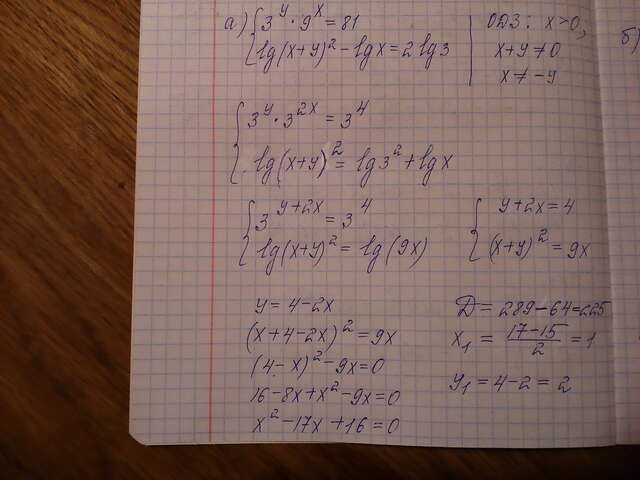 а) { 3^y · 9^x = 81
lg(x+y)^2 - lg x = 2 lg 3
ОДЗ: x > 0,
x+y ≠ 0
x ≠ -y
б)
{ 3^y · 3^{2x} = 3^4
lg(x+y)^2 = lg 3^2 + lg x
{ 3^{y+2x} = 3^4
lg(x+y)^2 = lg(9x)
{ y+2x = 4
(x+y)^2 = 9x
y = 4-2x
(x+4-2x)^2 = 9x
(4-x)^2 - 9x = 0
16-8x+x^2-9x=0
x^2-17x+16=0
Д = 289-64=225
x_1 = \frac{17-15}{2} = 1
y_1 = 4-2 = 2